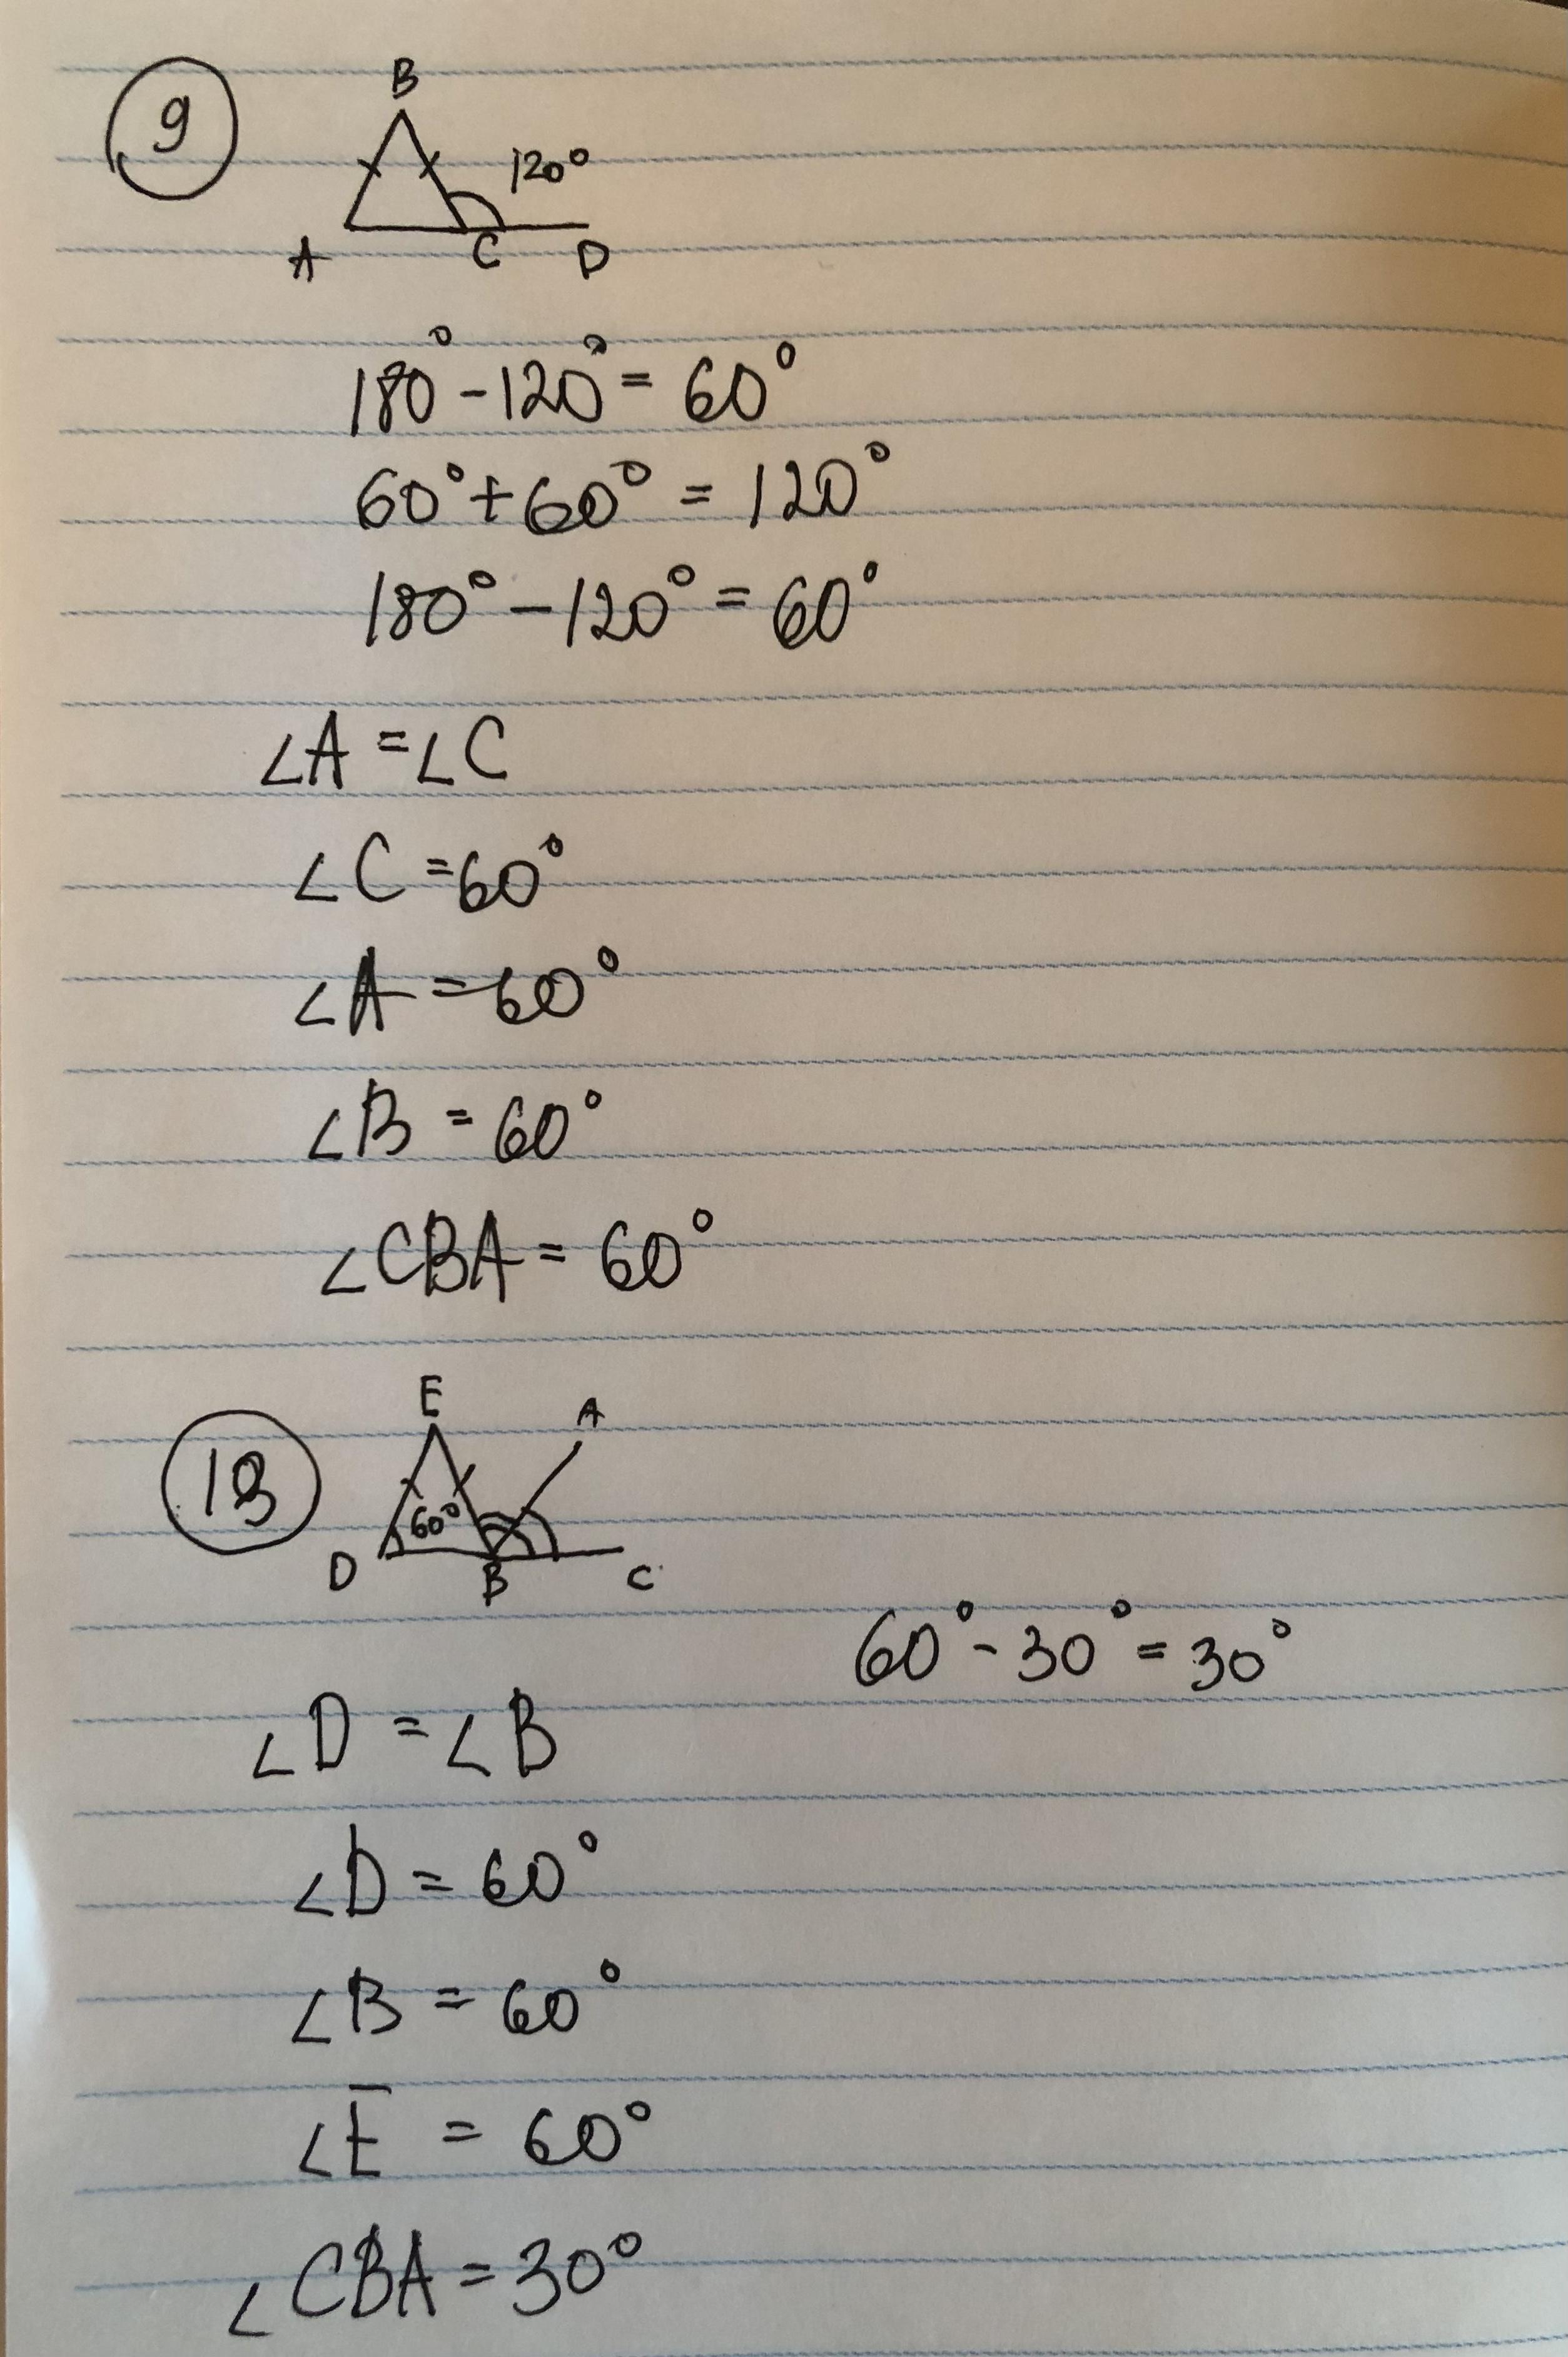 9
B
120°
A C D
180° - 120° = 60°
60° + 60° = 120°
180° - 120° = 60°
∠A = ∠C
∠C = 60°
∠A = 60°
∠B = 60°
∠CBA = 60°
E A
13
60°
D B C
60° - 30° = 30°
∠D = ∠B
∠D = 60°
∠B = 60°
∠E = 60°
∠CBA = 30°